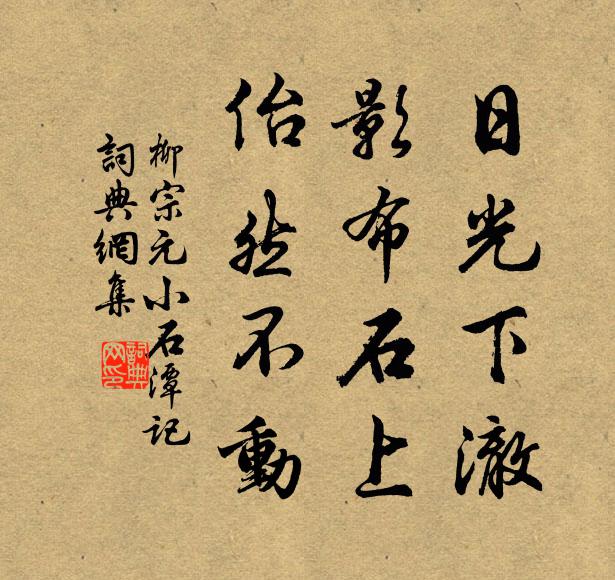 日光下澈
影布石上
佁然不動
柳宗元小石潭記
詞典網集
詞典網印